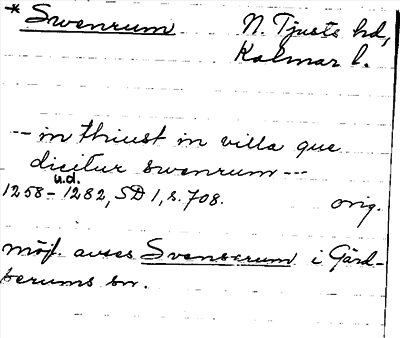 * Swenrum N. Tjusts hd,
Kalmar l.
-- in thiust in villa que
dicitur swenrum ---
u.d.
1258-1282, SD 1, s. 708. orig.
möjl. avses Svenserum i Gärd-
serums sn.